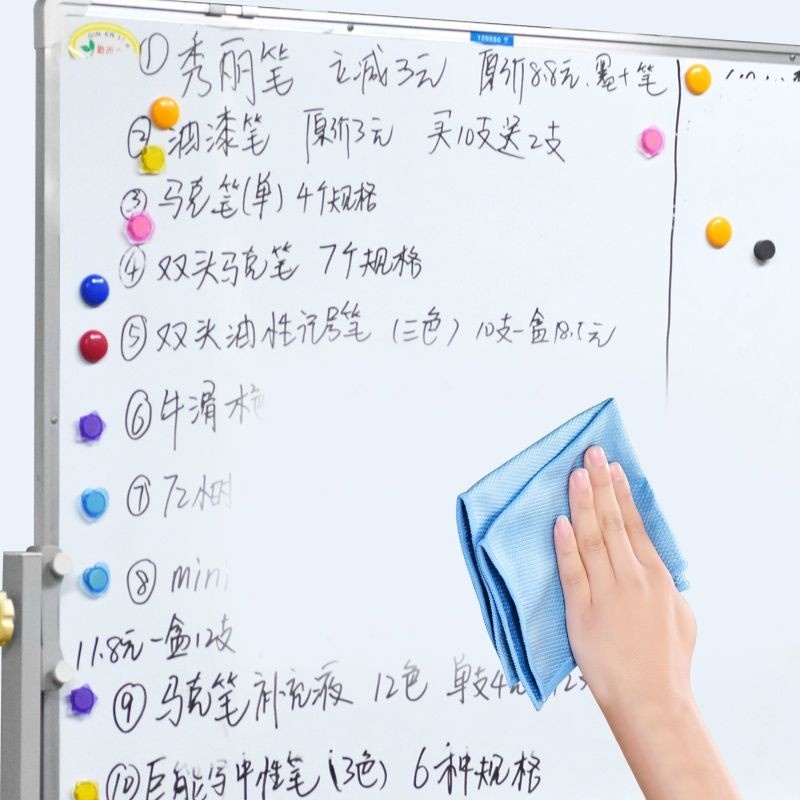 ① 秀丽笔 立减3元 原价8.8元.墨+笔
② 油漆笔 原价3元 买10支送2支
③ 马克笔(单) 4个规格
④ 双头马克笔 7个规格
⑤ 双头油性记号笔 (三色) 10支一盒18.5元
⑥ 牛滑
⑦
⑧ mini
11.8元一盒12支
⑨ 马克笔补充液 12色 单支4元
⑩ 巨能写中性笔 (3色) 6种规格